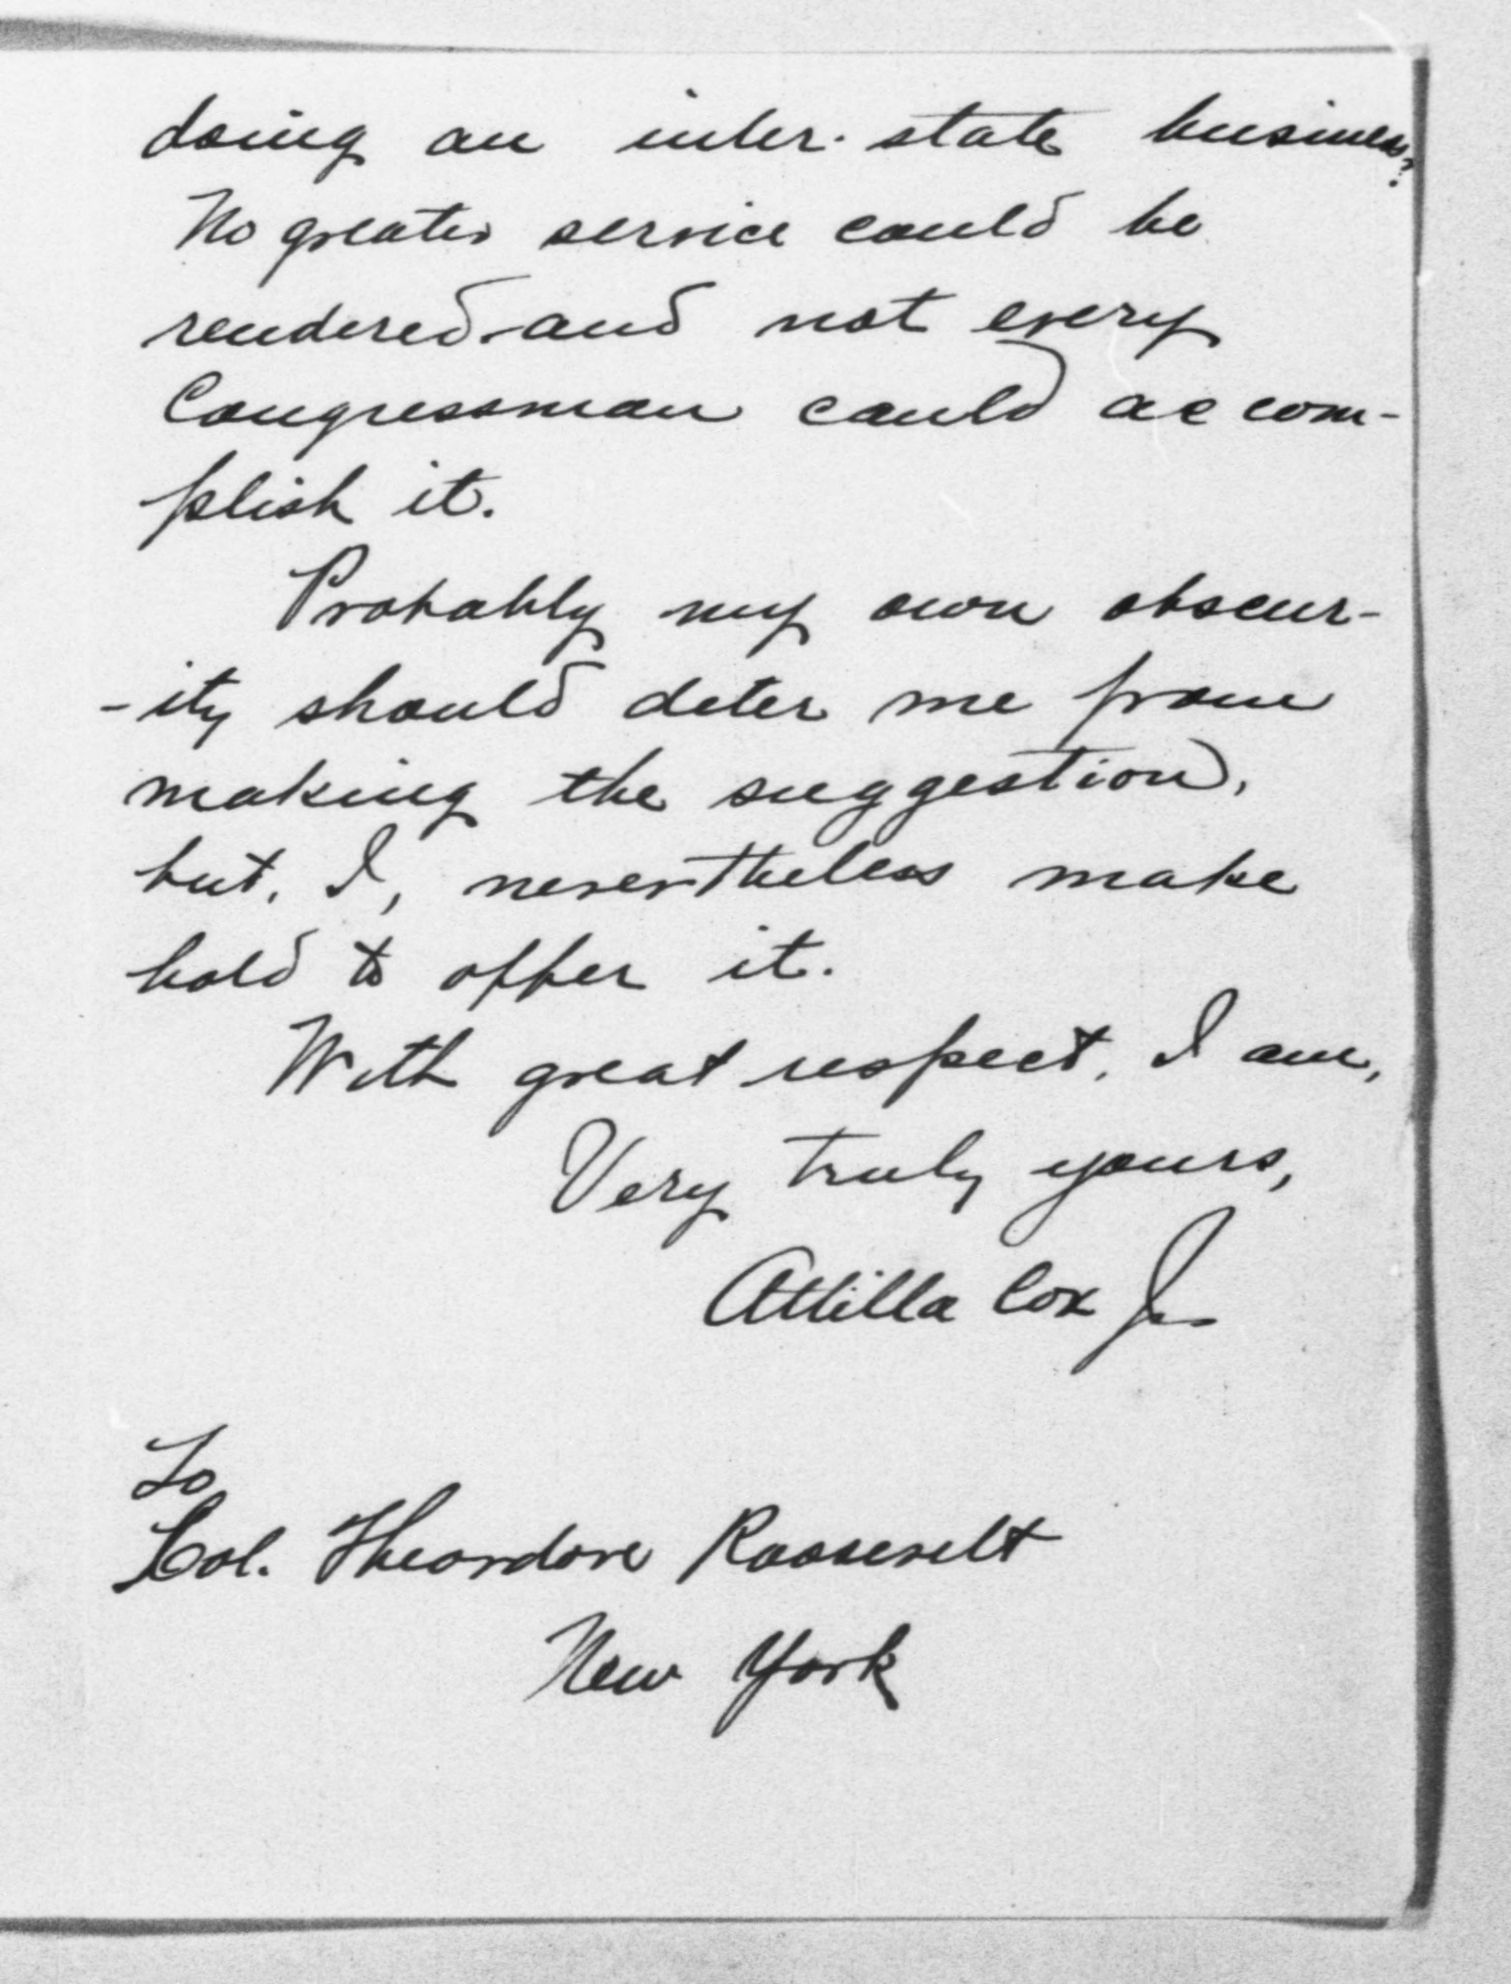 doing an inter-state business?
No greater service could be
rendered-and not every
Congressman could accom-
plish it.
Probably my own obscur-
-ity should deter me from
making the suggestion,
but, I, nevertheless make
bold to offer it.
With great respect, I am,
Very truly yours,
Attilla Cox Jr
To
Col. Theordore Roosevelt
New York